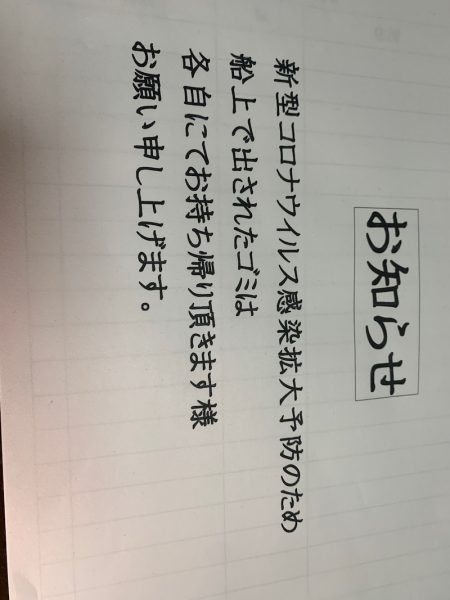 お知らせ
新型コロナウイルス感染拡大予防のため
船上で出されたゴミは
各自にてお持ち帰り頂きます様
お願い申し上げます。